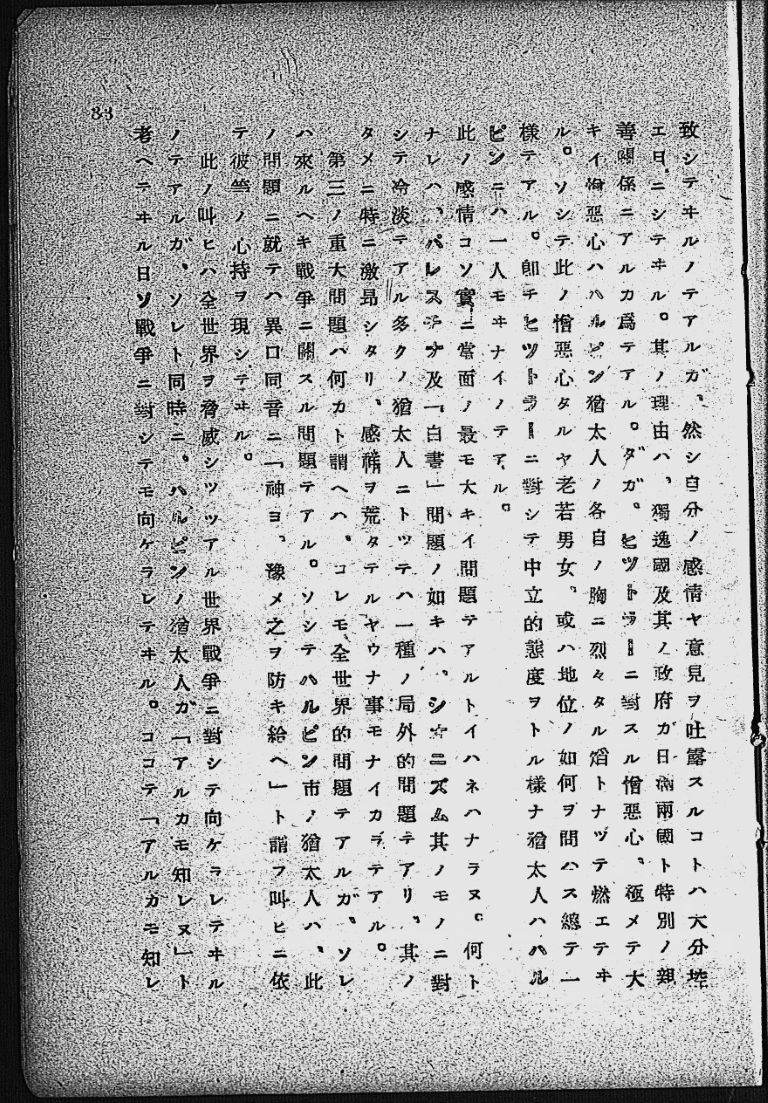 致シテヰルノテアルガ、然シ自分ノ感情ヤ意見ヲ吐露スルコトハ大分控
エ目ニシテヰル。其ノ理由ハ、獨逸國及其ノ政府ガ日滿兩國ト特別ノ親
善關係ニアルカ爲テアル。ダガ。ヒツトラーニ對スル憎惡心、極メテ大
キイ憎惡心ハハルピン猶太人ノ各自ノ胸ニ烈々タル焰トナツテ燃エテヰ
ル。ソシテ此ノ憎惡心タルヤ老若男女、或ハ地位ノ如何ヲ問ハス總テ一
樣テアル。卽チヒツトラーニ對シテ中立的態度ヲトル樣ナ猶太人ハハル
ピンニハ一人モヰナイノテアル。
此ノ感情コソ實ニ當面ノ最モ大キイ問題テアルトイハネハナラヌ。何ト
ナレハ、パレスチナ及「白書」問題ノ如キハ、シオニズム其ノモノニ對
シテ冷淡テアル多クノ猶太人ニトツテハ一種ノ局外的問題テアリ、其ノ
タメニ特ニ激昂シタリ、感情ヲ荒タテルヤウナ事モナイカラテアル。
第三ノ重大問題ハ何カト謂ヘハ、コレモ全世界的問題テアルガ、ソレ
ハ來ルヘキ戰爭ニ關スル問題テアル。ソシテハルピン市ノ猶太人ハ、此
ノ問題ニ就テハ異口同音ニ「神ヨ、豫メ之ヲ防キ給ヘ」ト謂フ叫ヒニ依
テ彼等ノ心持ヲ現シテヰル。
此ノ叫ヒハ全世界ヲ脅威シツツアル世界戰爭ニ對シテ向ケラレテヰル
ノテアルガ、ソレト同時ニ、ハルピンノ猶太人ガ「アルカモ知レヌ」ト
考ヘテヰル日ソ戰爭ニ對シテモ向ケラレテヰル。ココテ「アルカモ知レ
83